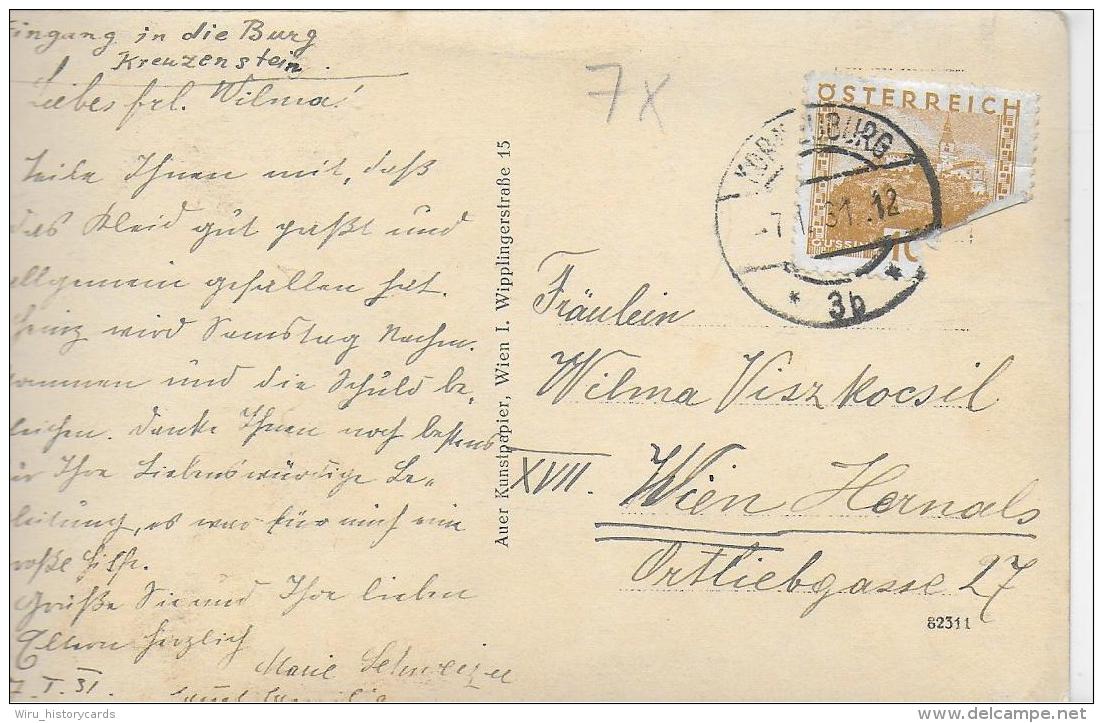 Eingang in die Burg
Kreuzenstein.
Liebes Frl. Wilma!
Teile Ihnen mit, daß
das Kleid gut paßt und
allgemein gefallen hat.
Heinz wird Samstag Nachm.
kommen und die Schuld be-
gleichen. Danke Ihnen noch bestens
für Ihre Liebenswürdige Be-
gleitung, es war für mich eine
große Hilfe.
Grüße Sie und Ihre lieben
Eltern herzlich
Marie Schweizer
7.I.31.
samt Familie
Auer Kunstpapier, Wien I. Wipplingerstraße 15
7x
ÖSTERREICH
GÜSSING
10
KORNEUBURG
31.12
* 3b *
Fräulein
Wilma Viszkocsil
XVII. Wien Hernals
Ortliebgasse 27
82311
Wiru_historycards
delcampe.net